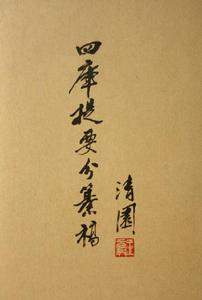 四库提要分纂稿
清園